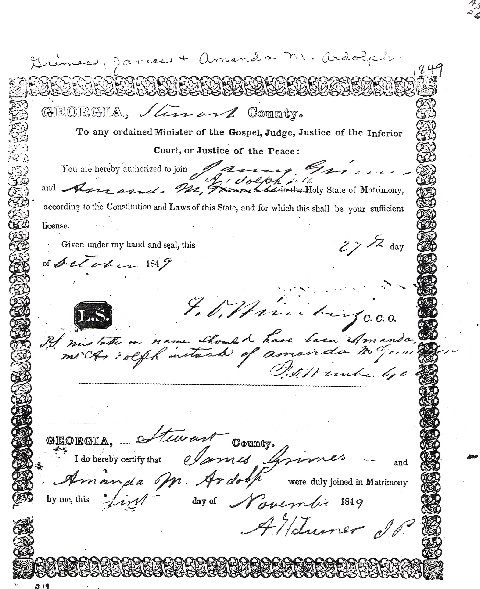 Grimes, James & Amanda M. Ardolph
1849
GEORGIA, Stewart County.
To any ordained Minister of the Gospel, Judge, Justice of the Inferior
Court, or Justice of the Peace:
You are hereby authorized to join James Grimes
Ardolph
and Amanda M. Holy State of Matrimony,
according to the Constitution and Laws of this State, and for which this shall be your sufficient
license.
Given under my hand and seal, this 27th day
of October 1849
L.S.
C.C.O.
mistake in name should have been Amanda
M Ardolph instead of Amanda M
GEORGIA, Stewart County.
I do hereby certify that James Grimes and
Amanda M. Ardolph were duly joined in Matrimony
by me, this first day of November 1849
A Turner J P